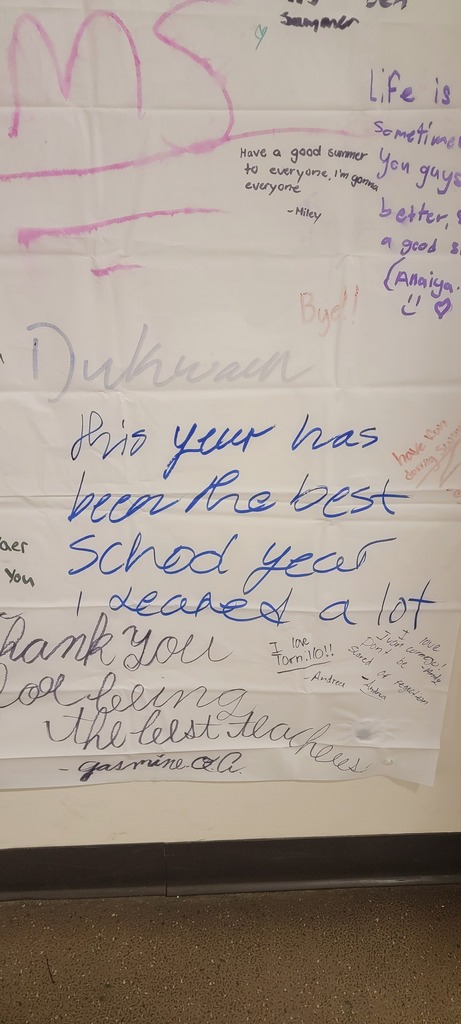 Summer
MS
Life is
sometime
you guys
better,
a good s
(Anaiya.
Have a good summer
to everyone, I'm gonna
everyone
-Miley
Bye!!
have
during
this year has
been the best
School year
I Leaned a lot
you
Thank you
for being
the best teachers
- gasmine.
I love
Tornillo!!
-Andrea
I love
Don't be
scared of rejection
-Andrea